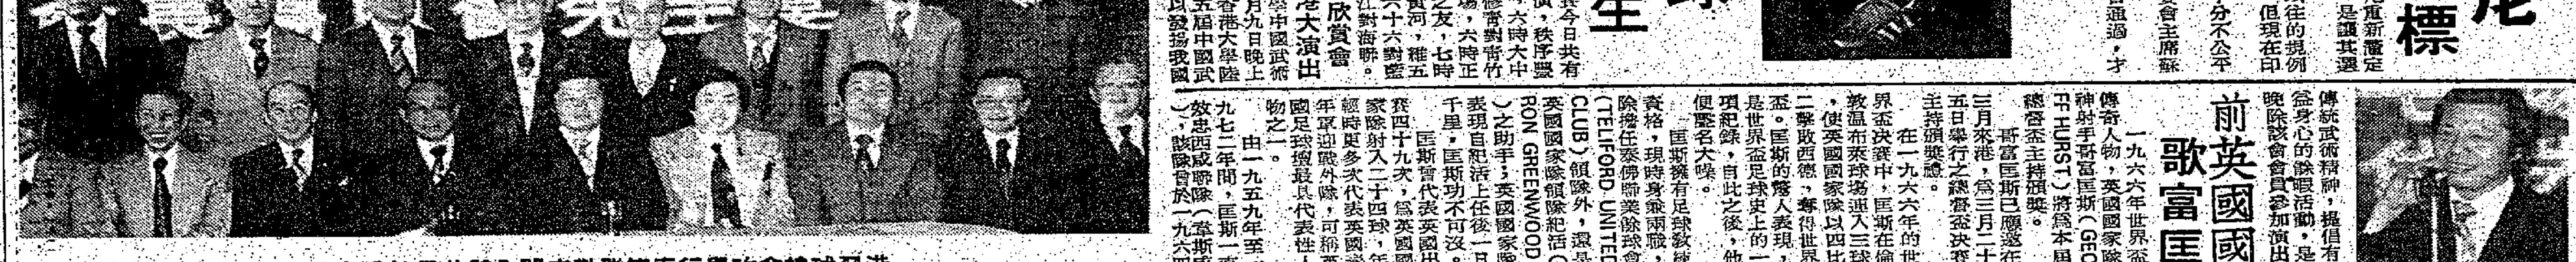 尼
標
先重新釐定
是讓其選
往的規例
但現在印
十分不公平
委會主席蘇
普通過，才
球
生
賽今日共有
演，秩序豐
，六時大中
修靑對靑竹
場，六時正
之友，七時
黃河，確五
六十六對藍
江對海聯。
欣賞會
港大演出
學中國武術
月九日晚上
香港大學陸
五屆中國武
以發揚我國
傳統武術精神，提倡有
益身心的餘暇活動，是
晚除該會會員參加演出
前英國國
歌富匡
一九六六年世界盃
傳奇人物，英國國家隊
神射手哥富匡斯（GEO
FF HURST）將爲本屆
總督盃主持頒獎。
哥富匡斯已應邀在
三月來港，爲三月二十
五日舉行之總督盃決賽
主持頒獎禮。
在一九六六年的世
界盃決賽中，匡斯在倫
敦溫布萊球場連入三球
，使英國國家隊以四比
二擊敗西德，奪得世界
盃。匡斯的驚人表現，
是世界盃足球史上的一
項紀錄，自此之後，他
便聲名大噪。
匡斯擁有足球敎練
資格，現時身兼兩職，
除擔任泰佛聯業餘球會
（TELIFORD UNITE
CLUB）領隊外，還是
英國國家隊領隊紀活（
RON GREENWOOD
）之助手；英國國家隊
表現自紀活上任後一日
千里，匡斯功不可沒。
匡斯曾代表英國出
賽四十九次，爲英國國
家隊射入二十四球，年
輕時更多次代表英國
年軍迎戰外隊，可稱英
國足球壇最具代表性人
物之一。
由一九五九年至一
九七二年間，匡斯一直
效忠西咸聯隊（韋斯咸
），該隊曾於一九六四